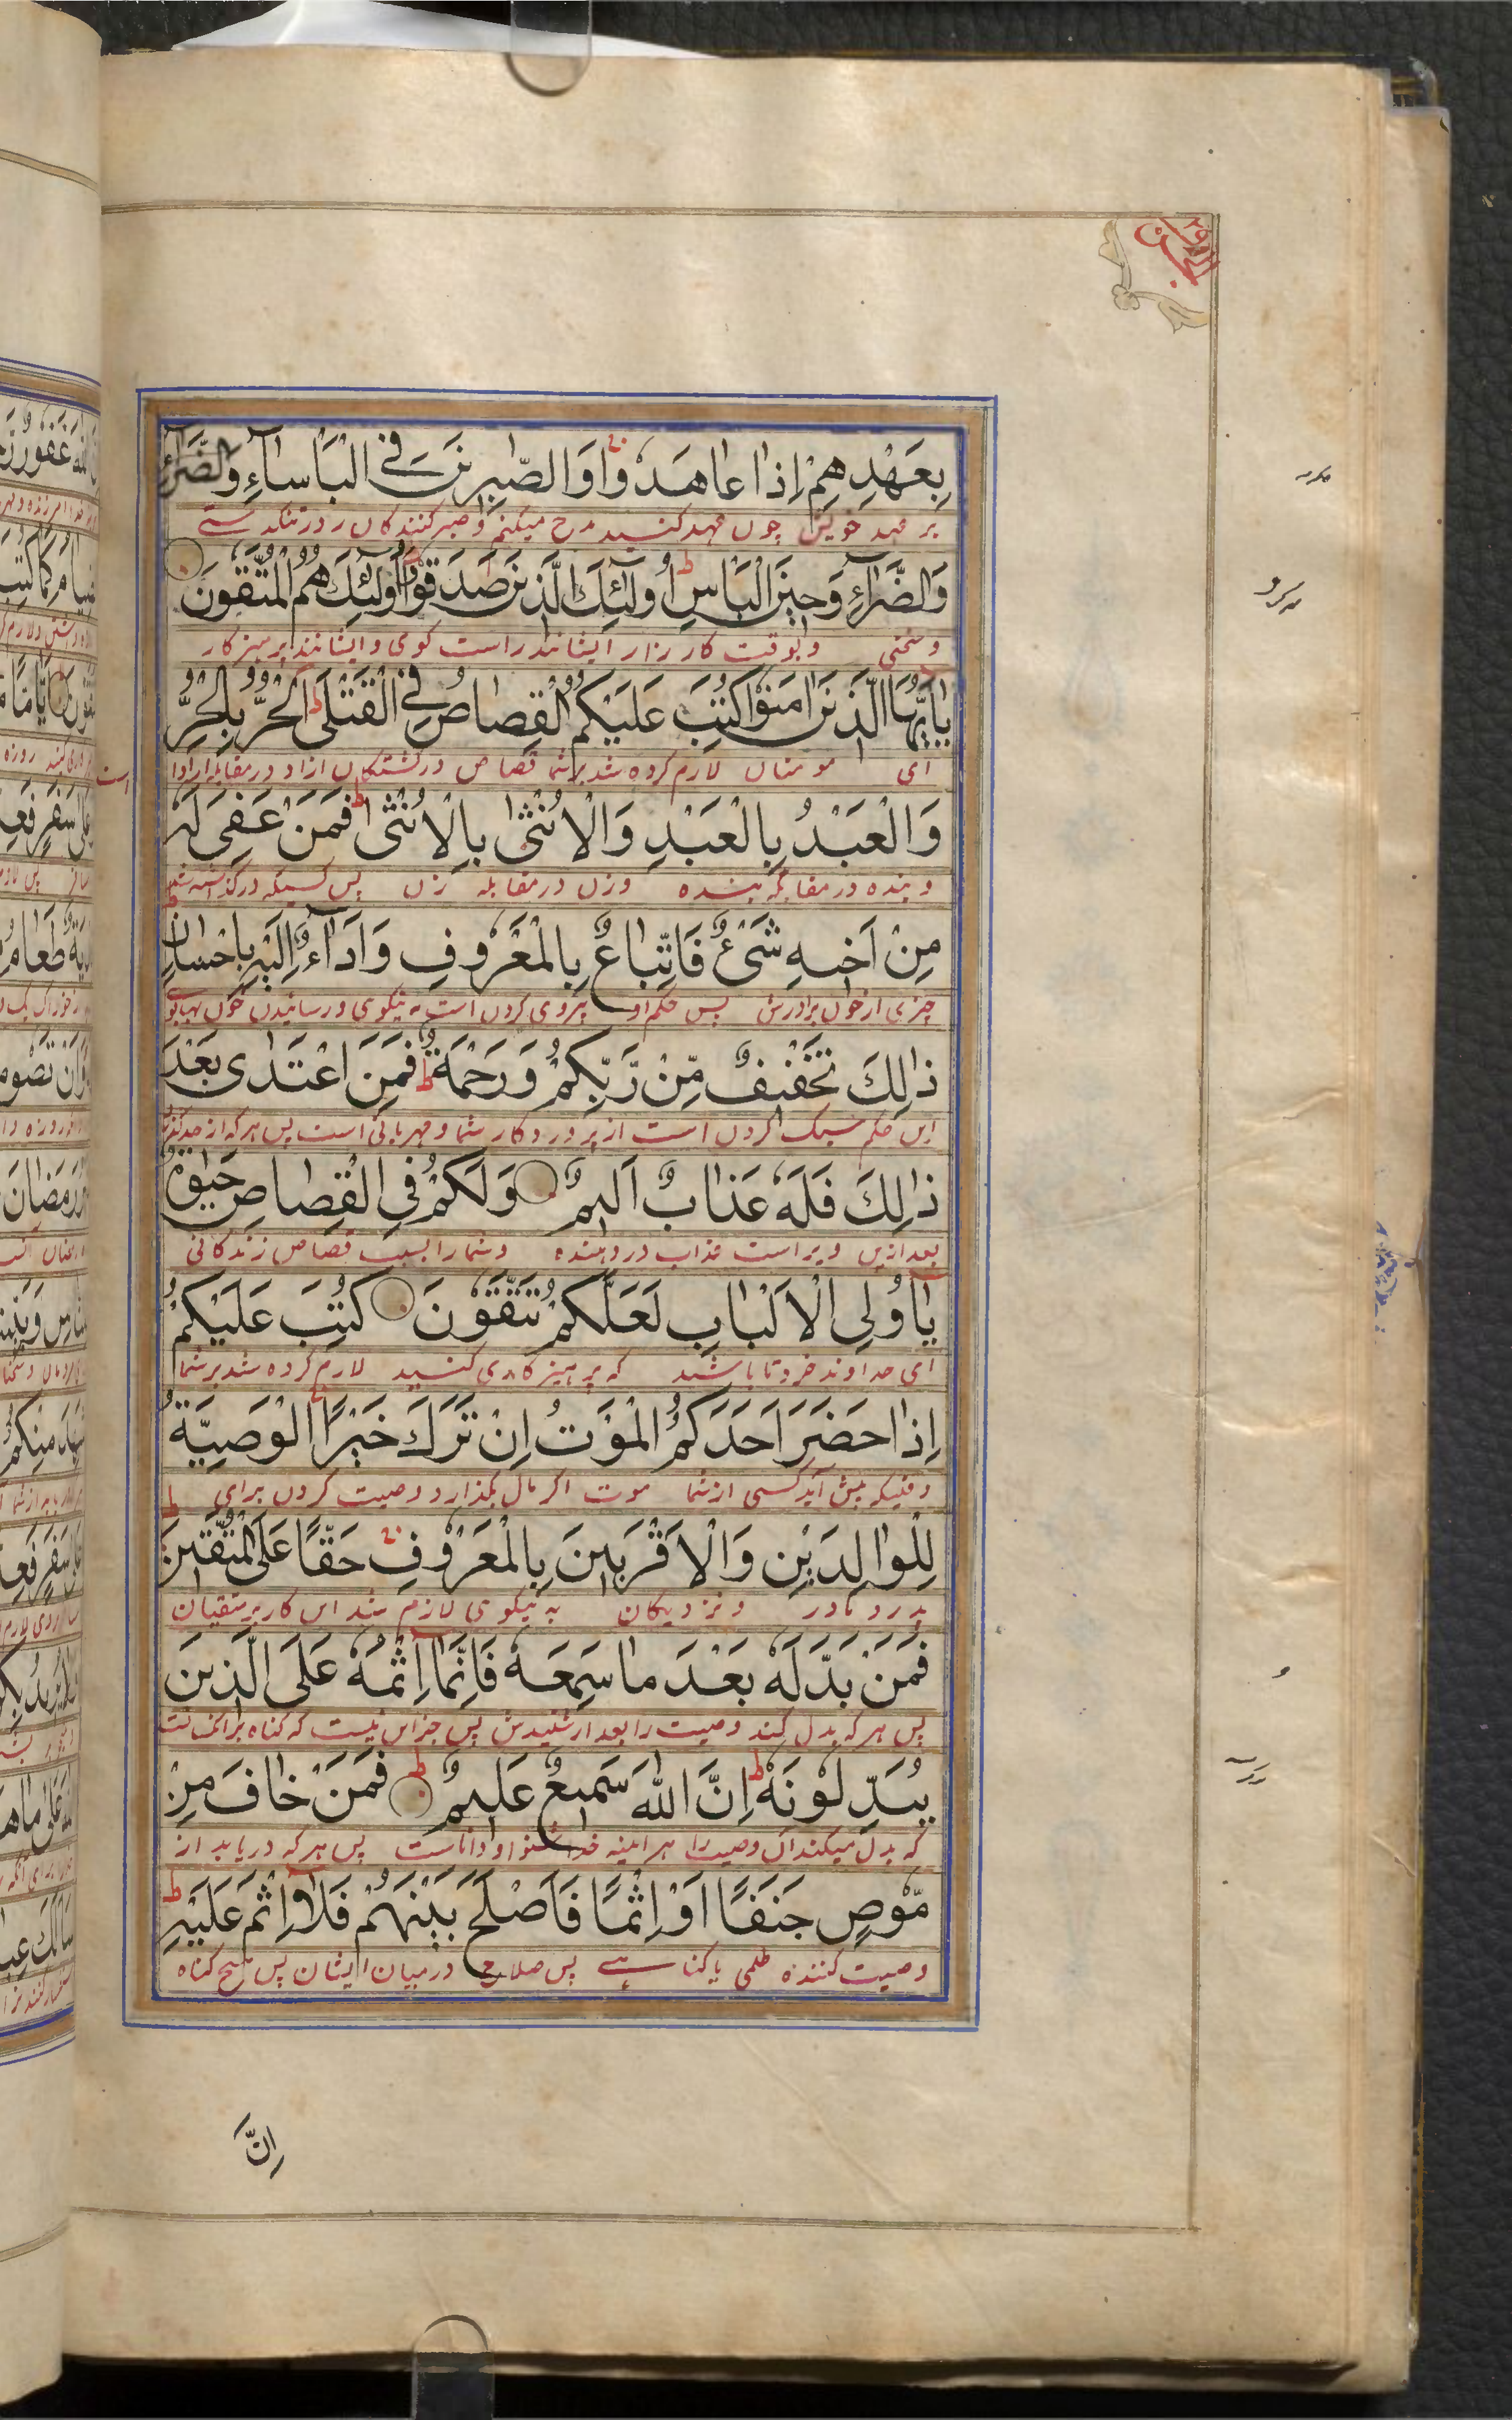 بِعَهْدِهِمْ اِذَا عَاهَدُوا وَالصّٰبِرِیْنَ فِی الْبَاْسَآءِ وَالضَّرَّآءِ
بر عهد خویش چون عهد کنند مدح میکنم و صبر کنندکان را در تنکدستے
وَالضَّرَّآءِ وَحِیْنَ الْبَاْسِ ط اُولٰٓئِكَ الَّذِیْنَ صَدَقُوْا وَاُولٰٓئِكَ هُمُ الْمُتَّقُوْنَ
و سختی و بوقت کار زار ایشانند راست کوی و ایشانند پرهیز کار
یٰاَیُّهَا الَّذِیْنَ اٰمَنُوْا كُتِبَ عَلَیْكُمُ الْقِصَاصُ فِی الْقَتْلٰی ط اَلْحُرُّ بِالْحُرِّ
ای مومنان لازم کرده شد بر شما قصاص در کشتکان ازاد در مقابله ازاد
وَالْعَبْدُ بِالْعَبْدِ وَالْاُنْثٰی بِالْاُنْثٰی ط فَمَنْ عُفِیَ لَهٗ
و بنده در مقابله بنده وزن در مقابله زن پس کسیکه در کذاشته شد
مِنْ اَخِیْهِ شَیْءٌ فَاتِّبَاعٌ بِالْمَعْرُوْفِ وَاَدَآءٌ اِلَیْهِ بِاِحْسَانٍ ط
چیزی از خون برادرش پس حکم او پیروی کردن است به نیکوی و رسانیدن خون بها بوی
ذٰلِكَ تَخْفِیْفٌ مِّنْ رَّبِّكُمْ وَرَحْمَةٌ ط فَمَنِ اعْتَدٰی بَعْدَ
این حکم سبک کردن است از پروردکار شما و مهربانی است پس هر که از حد کذرد
ذٰلِكَ فَلَهٗ عَذَابٌ اَلِیْمٌ وَلَكُمْ فِی الْقِصَاصِ حَیٰوةٌ
بعد ازین ویراست عذاب دردهنده و شما را بسبب قصاص زندکانی
یٰاُولِی الْاَلْبَابِ لَعَلَّكُمْ تَتَّقُوْنَ كُتِبَ عَلَیْكُمْ
ای خداوند خرد تا باشد که پرهیز کاری کنید لازم کرده شد بر شما
اِذَا حَضَرَ اَحَدَكُمُ الْمَوْتُ اِنْ تَرَكَ خَیْرًا الْوَصِیَّةُ
وقتیکه پیش آید کسی از شما موت اکر مال بکذارد وصیت کردن برای
لِلْوَالِدَیْنِ وَالْاَقْرَبِیْنَ بِالْمَعْرُوْفِ حَقًّا عَلَی الْمُتَّقِیْنَ ط
پدر و مادر و نزدیکان به نیکوی لازم شد این کار بر متقیان
فَمَنْ بَدَّلَهٗ بَعْدَ مَا سَمِعَهٗ فَاِنَّمَا اِثْمُهٗ عَلَی الَّذِیْنَ
پس هر که بدل کند وصیت را بعد از شنیدنش پس جز این نیست که کناه بر انانست
یُبَدِّلُوْنَهٗ ط اِنَّ اللّٰهَ سَمِیْعٌ عَلِیْمٌ ط فَمَنْ خَافَ مِنْ
که بدل میکنند ان وصیت را هر اینه خدا شنوا و داناست پس هر که دریابد از
مُّوْصٍ جَنَفًا اَوْ اِثْمًا فَاَصْلَحَ بَیْنَهُمْ فَلَا اِثْمَ عَلَیْهِ ط
وصیت کننده ظلمی یا کناهے پس صلاح در میان ایشان پس هیچ کناه
اِنَّ